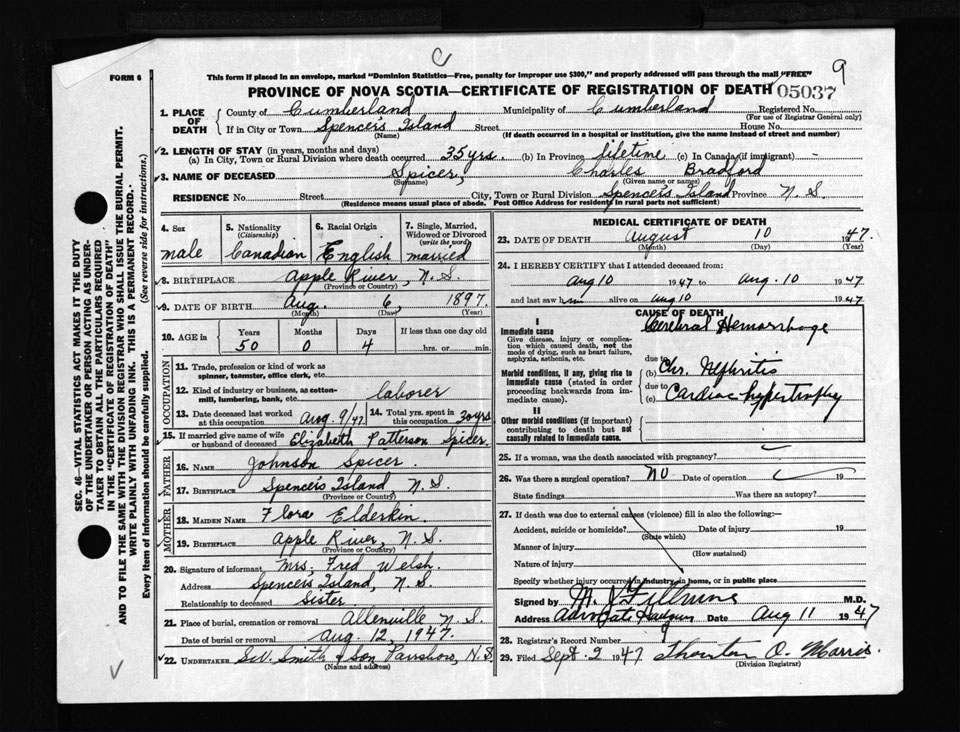 C
9
FORM 6
This form if placed in an envelope, marked "Dominion Statistics—Free, penalty for improper use $300," and properly addressed will pass through the mail "FREE"
PROVINCE OF NOVA SCOTIA—CERTIFICATE OF REGISTRATION OF DEATH 05037
1. PLACE OF DEATH County of Cumberland Municipality of Cumberland Registered No.
(For use of Registrar General only)
If in City or Town Spencer's Island Street House No.
(Name) (If death occurred in a hospital or institution, give the name instead of street and number)
2. LENGTH OF STAY (in years, months and days)
(a) In City, Town or Rural Division where death occurred 35 yrs. (b) In Province lifetime (c) In Canada (if immigrant) -
3. NAME OF DECEASED Spicer, Charles Bradford
(Surname) (Given name or names)
RESIDENCE No. Street City, Town or Rural Division Spencer's Island Province N.S.
(Residence means usual place of abode. Post Office Address for residents in rural parts not sufficient)
4. Sex male
5. Nationality (Citizenship) Canadian
6. Racial Origin English
7. Single, Married, Widowed or Divorced (write the word) married
8. BIRTHPLACE Apple River, N.S.
(Province or Country)
9. DATE OF BIRTH Aug. 6, 1897
(Month) (Day) (Year)
10. AGE in Years 50 Months 0 Days 4 If less than one day old hrs. or min.
OCCUPATION
11. Trade, profession or kind of work as spinner, teamster, office clerk, etc.
12. Kind of industry or business, as cotton-mill, lumbering, bank, etc. laborer
13. Date deceased last worked at this occupation Aug. 9/47 14. Total yrs. spent in this occupation 30 yrs
15. If married give name of wife or husband of deceased Elizabeth Patterson Spicer.
FATHER
16. NAME Johnson Spicer.
17. BIRTHPLACE Spencer's Island N.S.
(Province or Country)
MOTHER
18. MAIDEN NAME Flora Elderkin.
19. BIRTHPLACE Apple River, N.S.
(Province or Country)
20. Signature of informant Mrs. Fred Welsh.
Address Spencer's Island, N.S.
Relationship to deceased Sister.
21. Place of burial, cremation or removal Allenville N.S.
Date of burial or removal Aug. 12, 1947.
22. UNDERTAKER Smith & Son Parrsboro, N.S.
(Name and address)
MEDICAL CERTIFICATE OF DEATH
23. DATE OF DEATH August 10 1947.
(Month) (Day) (Year)
24. I HEREBY CERTIFY that I attended deceased from:
Aug 10 1947 to Aug. 10 1947
and last saw him alive on Aug 10 1947
CAUSE OF DEATH
I
Immediate cause Cerebral Hemorrhage
Give disease, injury or complication which caused death, not the mode of dying, such as heart failure, asphyxia, asthenia, etc.
due to
(b) Chr. Nephritis
Morbid conditions, if any, giving rise to immediate cause (stated in order proceeding backwards from immediate cause).
due to
(c) Cardiac hypertrophy
II
Other morbid conditions (if important) contributing to death but not causally related to immediate cause.
25. If a woman, was the death associated with pregnancy?
26. Was there a surgical operation? NO Date of operation 19
State findings Was there an autopsy?
27. If death was due to external causes (violence) fill in also the following:—
Accident, suicide or homicide? Date of injury 19
(State which)
Manner of injury
(How sustained)
Nature of injury
Specify whether injury occurred in industry, in home, or in public place
Signed by Fillmore M.D.
Address Advocate Harbour Date Aug 11 1947
28. Registrar's Record Number 9
29. Filed Sept. 2 1947 Thornton O. Morris.
(Division Registrar)
SEC. 46—VITAL STATISTICS ACT MAKES IT THE DUTY
OF THE UNDERTAKER OR PERSON ACTING AS UNDER-
TAKER TO OBTAIN ALL THE PARTICULARS REQUIRED
IN THE "CERTIFICATE OF REGISTRATION OF DEATH"
AND TO FILE THE SAME WITH THE DIVISION REGISTRAR WHO SHALL ISSUE THE BURIAL PERMIT.
WRITE PLAINLY WITH UNFADING INK. THIS IS A PERMANENT RECORD.
Every item of information should be carefully supplied. (See reverse side for instructions.)